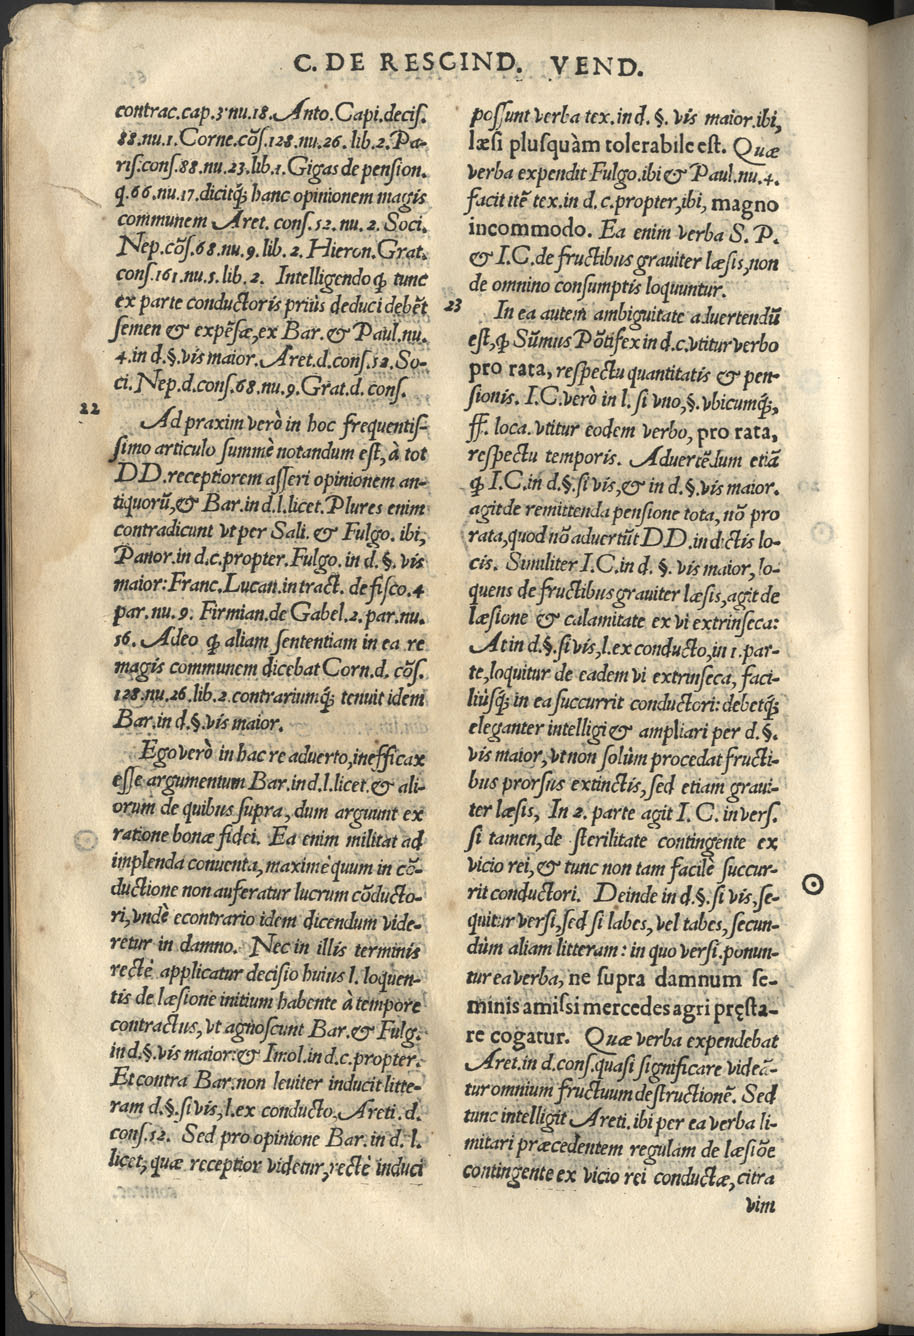 C. DE RESCIND. VEND.
contrac.cap.3.nu.18. Anto.Capi.decis.
88.nu.1.Corne.cõs.128.nu.26. lib.2.Pa-
ris.cons.88.nu.23.lib.1.Gigas de pension.
q.66.nu.17.dicitq́; hanc opinionem magis
communem Aret. cons.52. nu.2. Soci.
Nep.cõs.68.nu.9.lib.2. Hieron.Grat.
cons.161.nu.5.lib.2. Intelligendo q̃ tunc
ex parte conductoris priùs deduci debẽt
semen & expẽsæ,ex Bar.& Paul.nu.
4.in d.§.vis maior. Aret.d.cons.52.So-
ci.Nep.d.cons.68.nu.9.Grat.d.cons.
22
Ad praxim verò in hoc frequentis-
simo articulo summè notandum est, à tot
DD.receptiorem asseri opinionem an-
tiquorũ,& Bar.in d.l.licet.Plures enim
contradicunt vt per Sali.& Fulgo. ibi,
Panor.in d.c.propter.Fulgo.in d.§. vis
maior: Franc.Lucan.in tract. de fisco.4
par.nu.9. Firmian.de Gabel.2.par.nu.
56. Adeo q̃ aliam sententiam in ea re
magis communem dicebat Corn.d. cõs.
128.nu.26.lib.2.contrariumq́; tenuit idem
Bar.in d.§.vis maior.
Ego verò in hac re aduerto,inefficax
esse argumentum Bar.in d.l.licet.& ali-
orum de quibus supra, dum arguunt ex
ratione bonæ fidei. Ea enim militat ad
implenda conuenta,maximè quum in cõ-
ductione non auferatur lucrum cõducto-
ri,vndè econtrario idem dicendum vide-
retur in damno. Nec in illis terminis
rectè applicatur decisio huius l. loquen-
tis de læsione initium habente à tempore
contractus, vt agnoscunt Bar.& Fulg.
in d.§.vis maior:& Imol.in d.c.propter.
Et contra Bar.non leuiter inducit litte-
ram d.§.si vis,l.ex conducto. Areti. d.
cons.52. Sed pro opinione Bar.in d.l.
licet, quæ receptior videtur, rectè induci
possunt verba tex.in d. §. vis maior.ibi,
læsi plusquàm tolerabile est. Quæ
verba expendit Fulgo.ibi & Paul.nu.4.
facit itẽ tex.in d.c.propter,ibi, magno
incommodo. Ea enim verba S. P.
& I.C.de fructibus grauiter læsis,non
de omnino consumptis loquuntur.
23
In ea autem ambiguitate aduertendũ
est,q̃ Sũmus Põtifex in d.c.vtitur verbo
pro rata, respectu quantitatis & pen-
sionis. I.C.verò in l. si vno,§.vbicumq́;,
ff. loca.vtitur eodem verbo, pro rata,
respectu temporis. Aduertẽdum etiã
q̃ I.C.in d.§.si vis,& in d.§.vis maior.
agit de remittenda pensione tota, nõ pro
rata,quod nõ aduertũt DD.in dictis lo-
cis. Similiter I.C.in d. §. vis maior, lo-
quens de fructibus grauiter læsis,agit de
læsione & calamitate ex vi extrinseca:
At in d.§.si vis,l.ex conducto,in 1.par-
te,loquitur de eadem vi extrinseca, faci-
liùsq́; in ea succurrit conductori: debetq́;
eleganter intelligi & ampliari per d.§.
vis maior,vt non solùm procedat fructi-
bus prorsus extinctis,sed etiam graui-
ter læsis, In 2. parte agit I.C. in vers.
si tamen,de sterilitate contingente ex
vicio rei,& tunc non tam facilè succur-
rit conductori. Deinde in d.§.si vis,se-
quitur versi,sed si labes, vel tabes, secun-
dùm aliam litteram: in quo versi.ponun-
tur ea verba, ne supra damnum se-
minis amissi mercedes agri pręsta-
re cogatur. Quæ verba expendebat
Aret.in d.cons.quasi significare videã-
tur omnium fructuum destructionẽ. Sed
tunc intelligit Areti.ibi per ea verba li-
mitari præcedentem regulam de læsiõe
contingente ex vicio rei conductæ,citra
vim